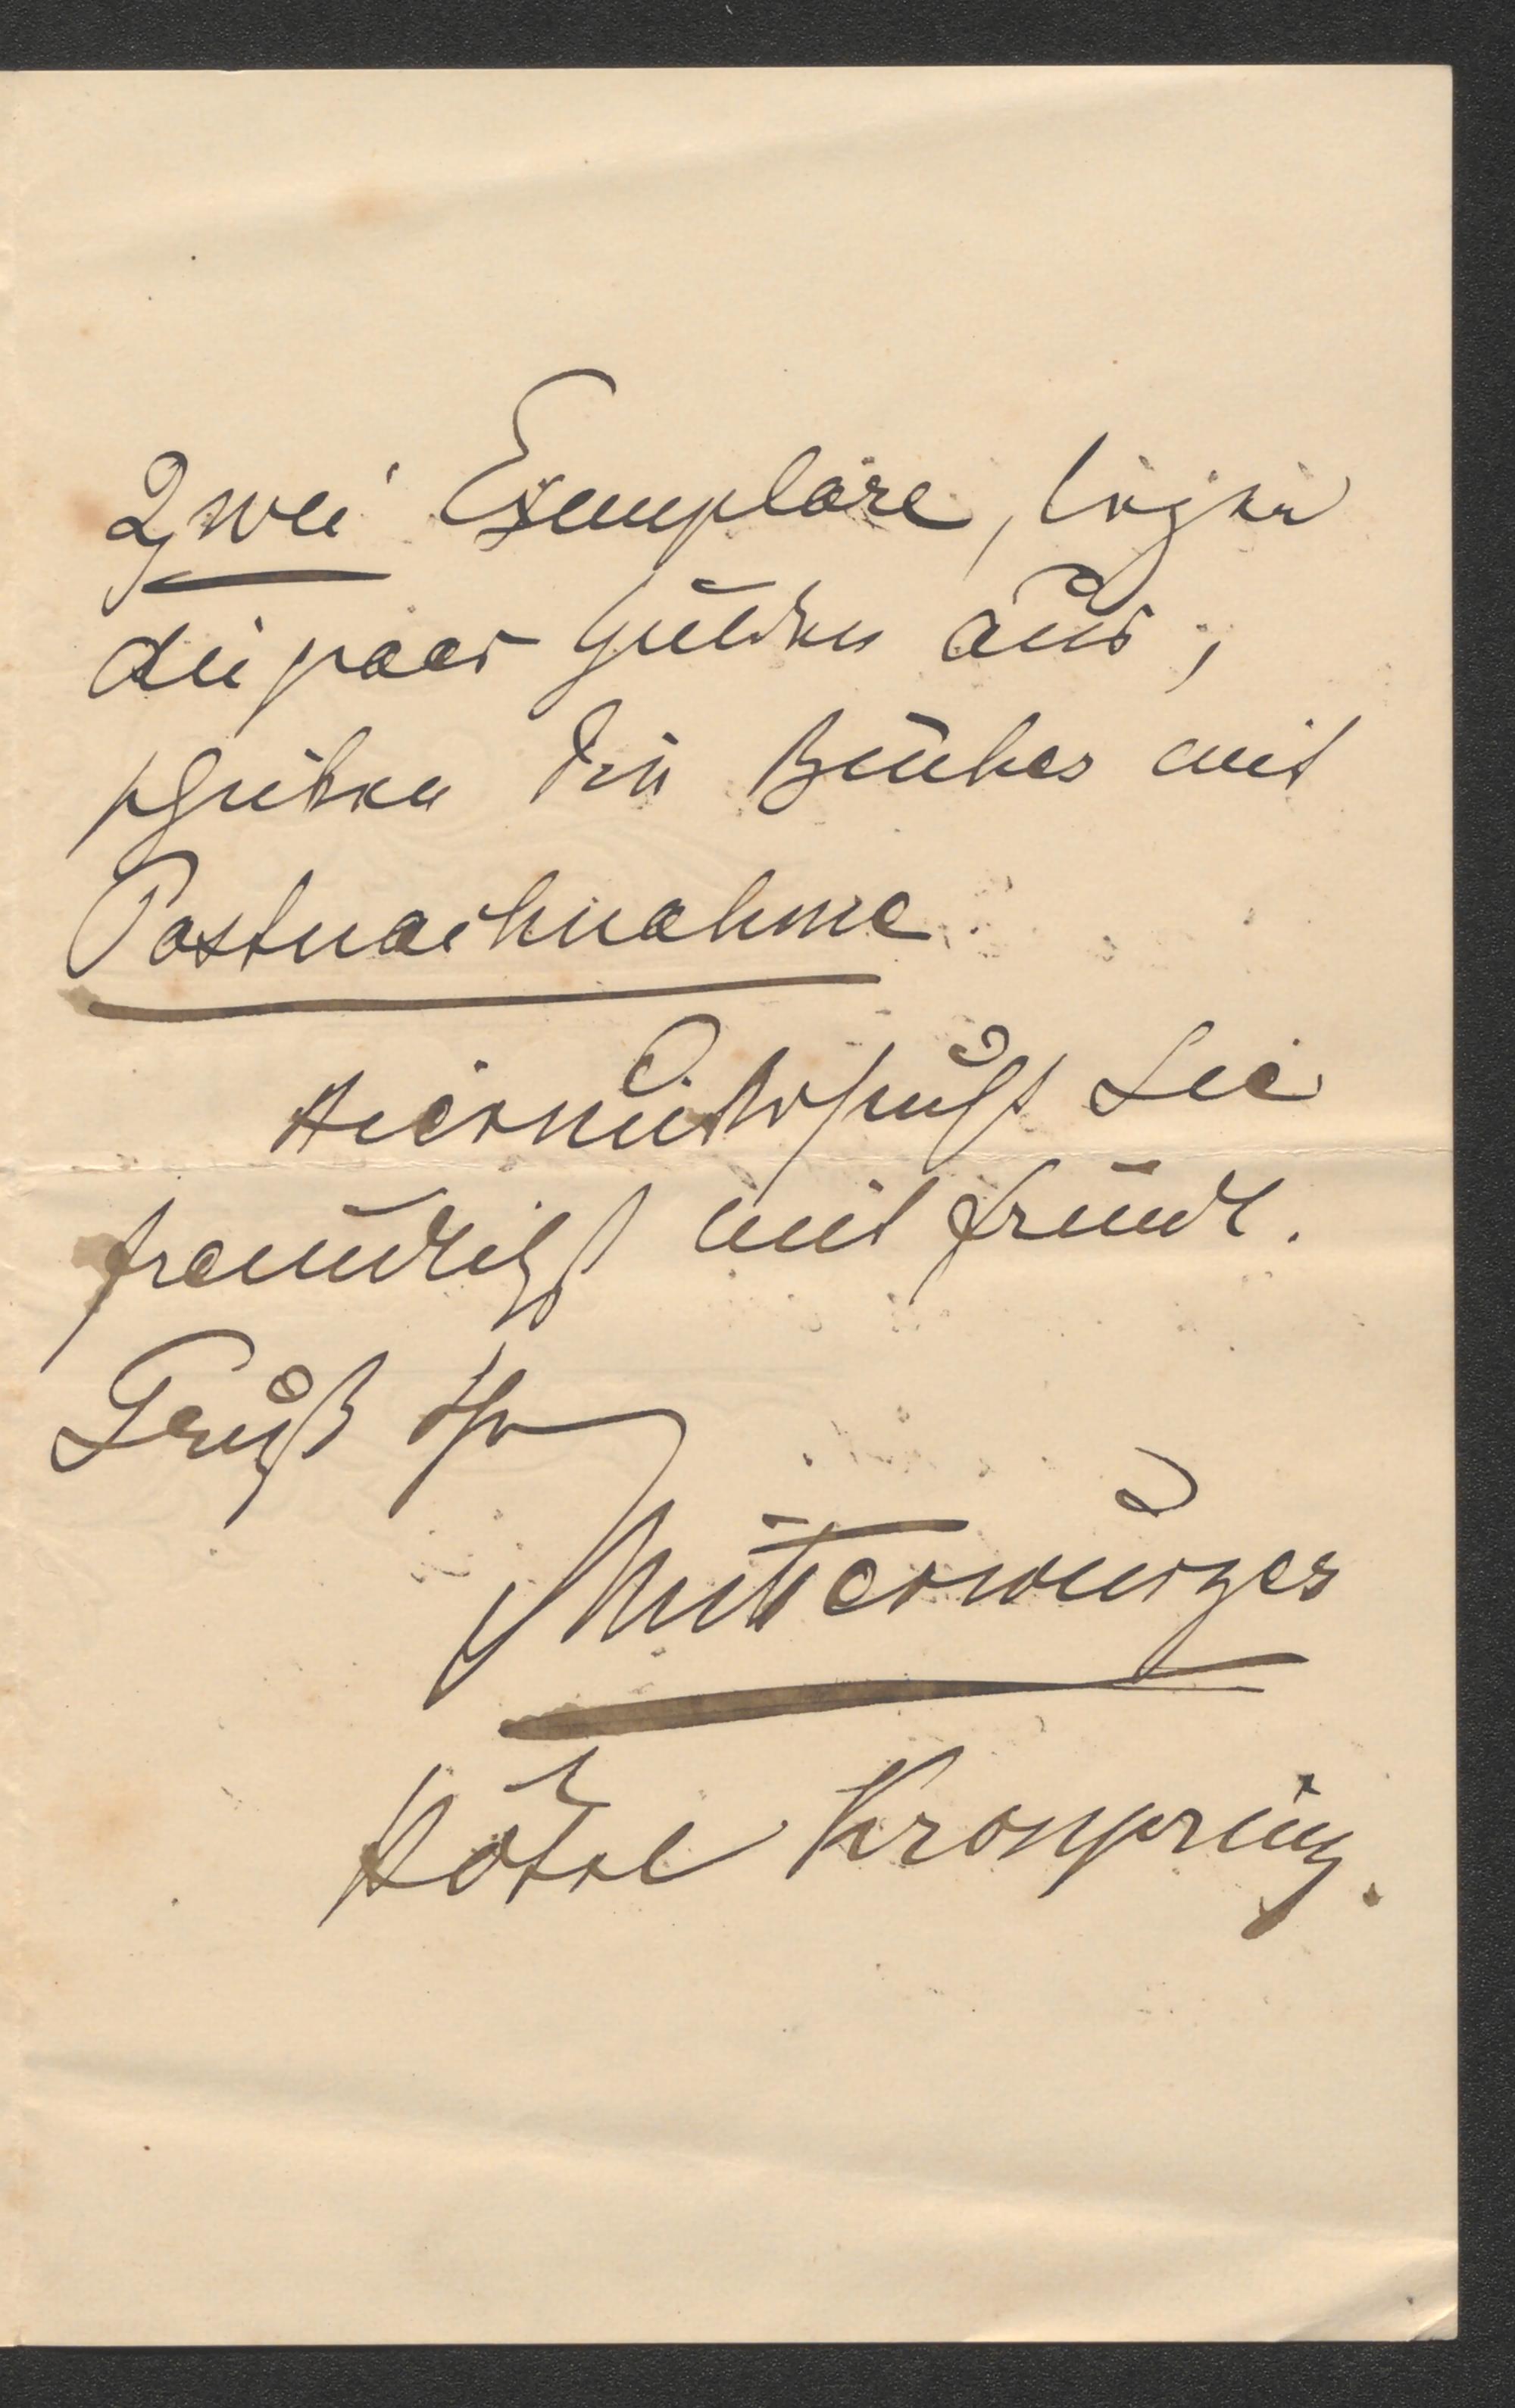 Zwei Exemplare, legen
die paar Gulden aus,
schicken die Bücher mit
Postnachnahme.
Hiermit ersucht Sie
freundlichst mit freundl.
Gruß Ihr
Mitterwurzer
Hôtel Kronprinz.